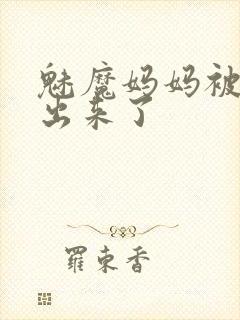 魅魔妈妈被
出来了
羅東香